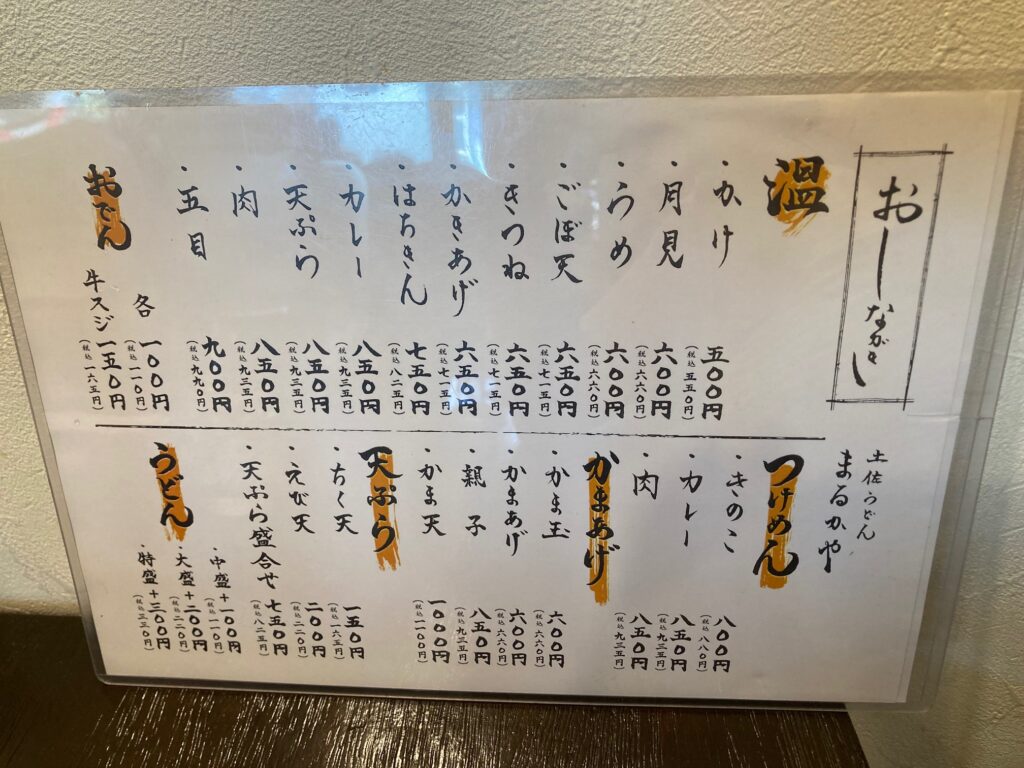 おしながき
温
・かけ 五〇〇円
(税込 五五〇円)
・月見 六〇〇円
(税込 六六〇円)
・うめ 六〇〇円
(税込 六六〇円)
・ごぼ天 六五〇円
(税込 七一五円)
・きつね 六五〇円
(税込 七一五円)
・かきあげ 六五〇円
(税込 七一五円)
・はちきん 七五〇円
(税込 八二五円)
・カレー 八五〇円
(税込 九三五円)
・天ぷら 八五〇円
(税込 九三五円)
・肉 八五〇円
(税込 九三五円)
・五目 九〇〇円
(税込 九九〇円)
おでん
各 一〇〇円
(税込 一一〇円)
牛スジ 一五〇円
(税込 一六五円)
土佐うどん
まるかや
つけめん
・きのこ 八〇〇円
(税込 八八〇円)
・カレー 八五〇円
(税込 九三五円)
・肉 八五〇円
(税込 九三五円)
かまあげ
・かま玉 六〇〇円
(税込 六六〇円)
・かまあげ 六〇〇円
(税込 六六〇円)
・親子 八五〇円
(税込 九三五円)
・かま天 一〇〇〇円
(税込 一一〇〇円)
天ぷら
・ちく天 一五〇円
(税込 一六五円)
・えび天 二〇〇円
(税込 二二〇円)
・天ぷら盛合せ 七五〇円
(税込 八二五円)
うどん
・中盛+一〇〇円
(税込 一一〇円)
・大盛+二〇〇円
(税込 二二〇円)
・特盛+三〇〇円
(税込 三三〇円)